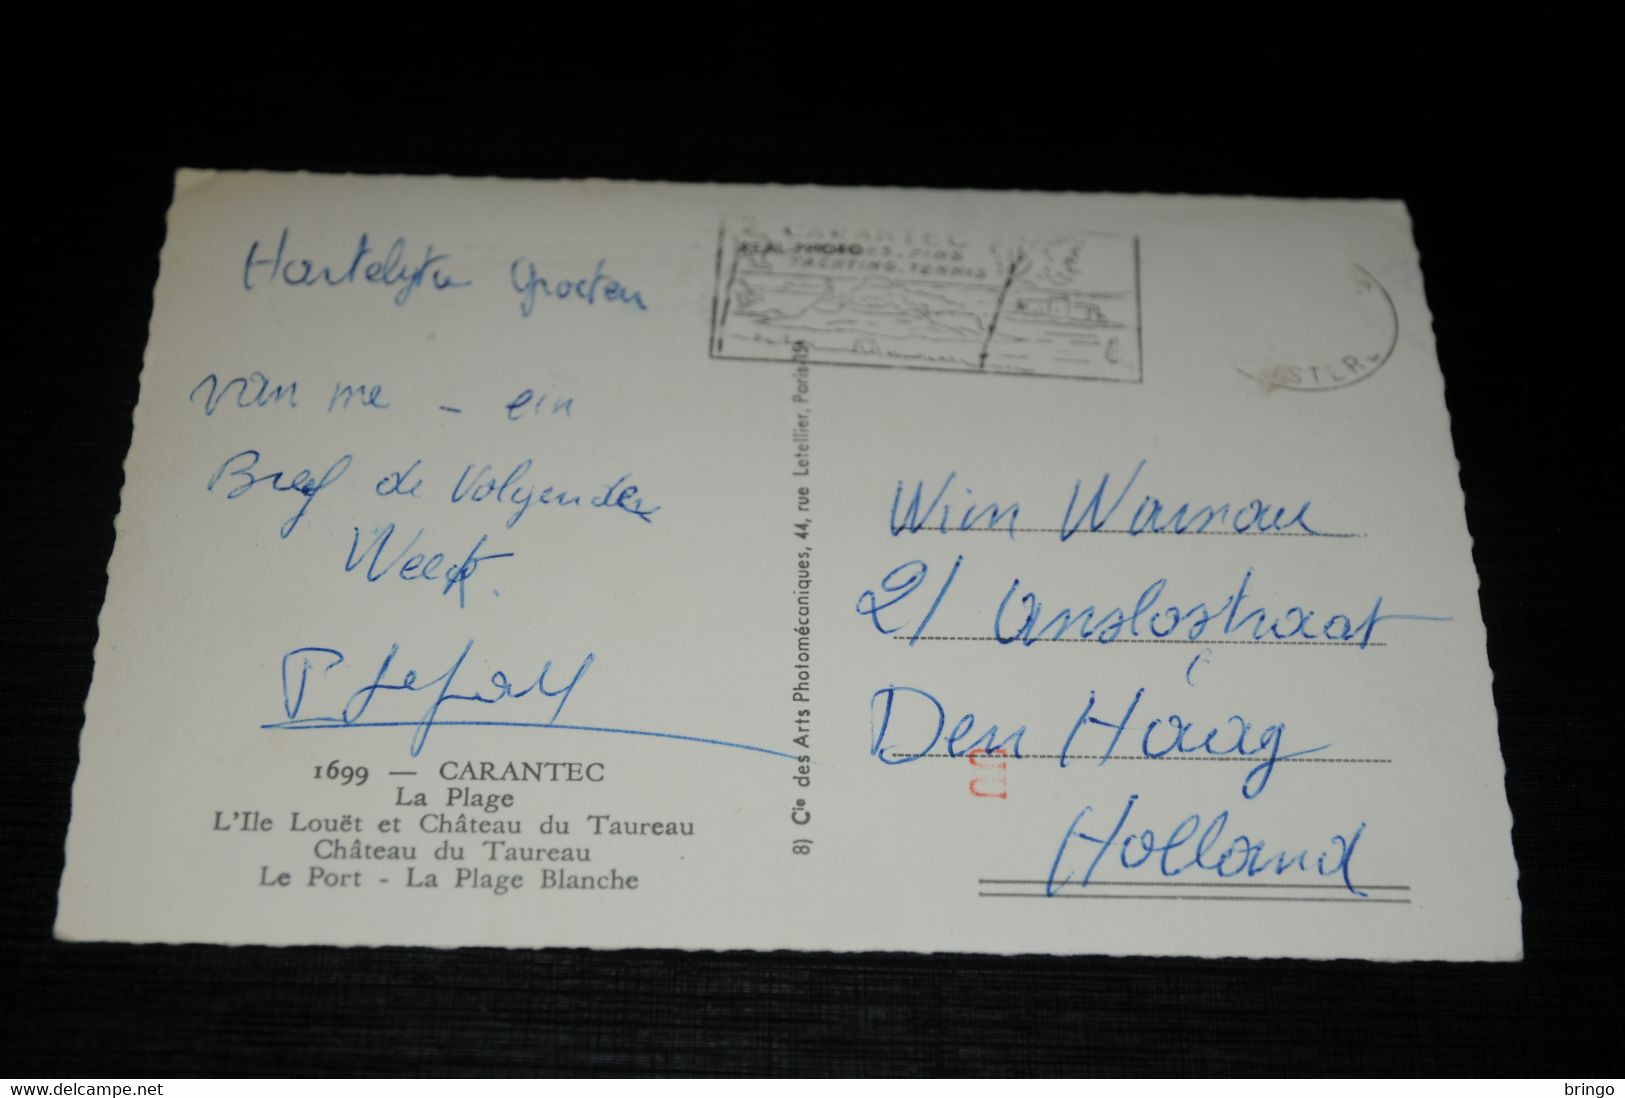 Hartelyke Groeten
van me - ein
Breef de Volgende
Week.
1699 — CARANTEC
La Plage
L'Ile Louët et Château du Taureau
Château du Taureau
Le Port - La Plage Blanche
8) Cie des Arts Photomécaniques, 44, rue Letellier, Paris-15e
CARANTEC
REAL PHOTO
PINS
YACHTING. TENNIS
Wim Warnau
21 Anslostraat
Den Haag
Holland
© delcampe.net
bringo